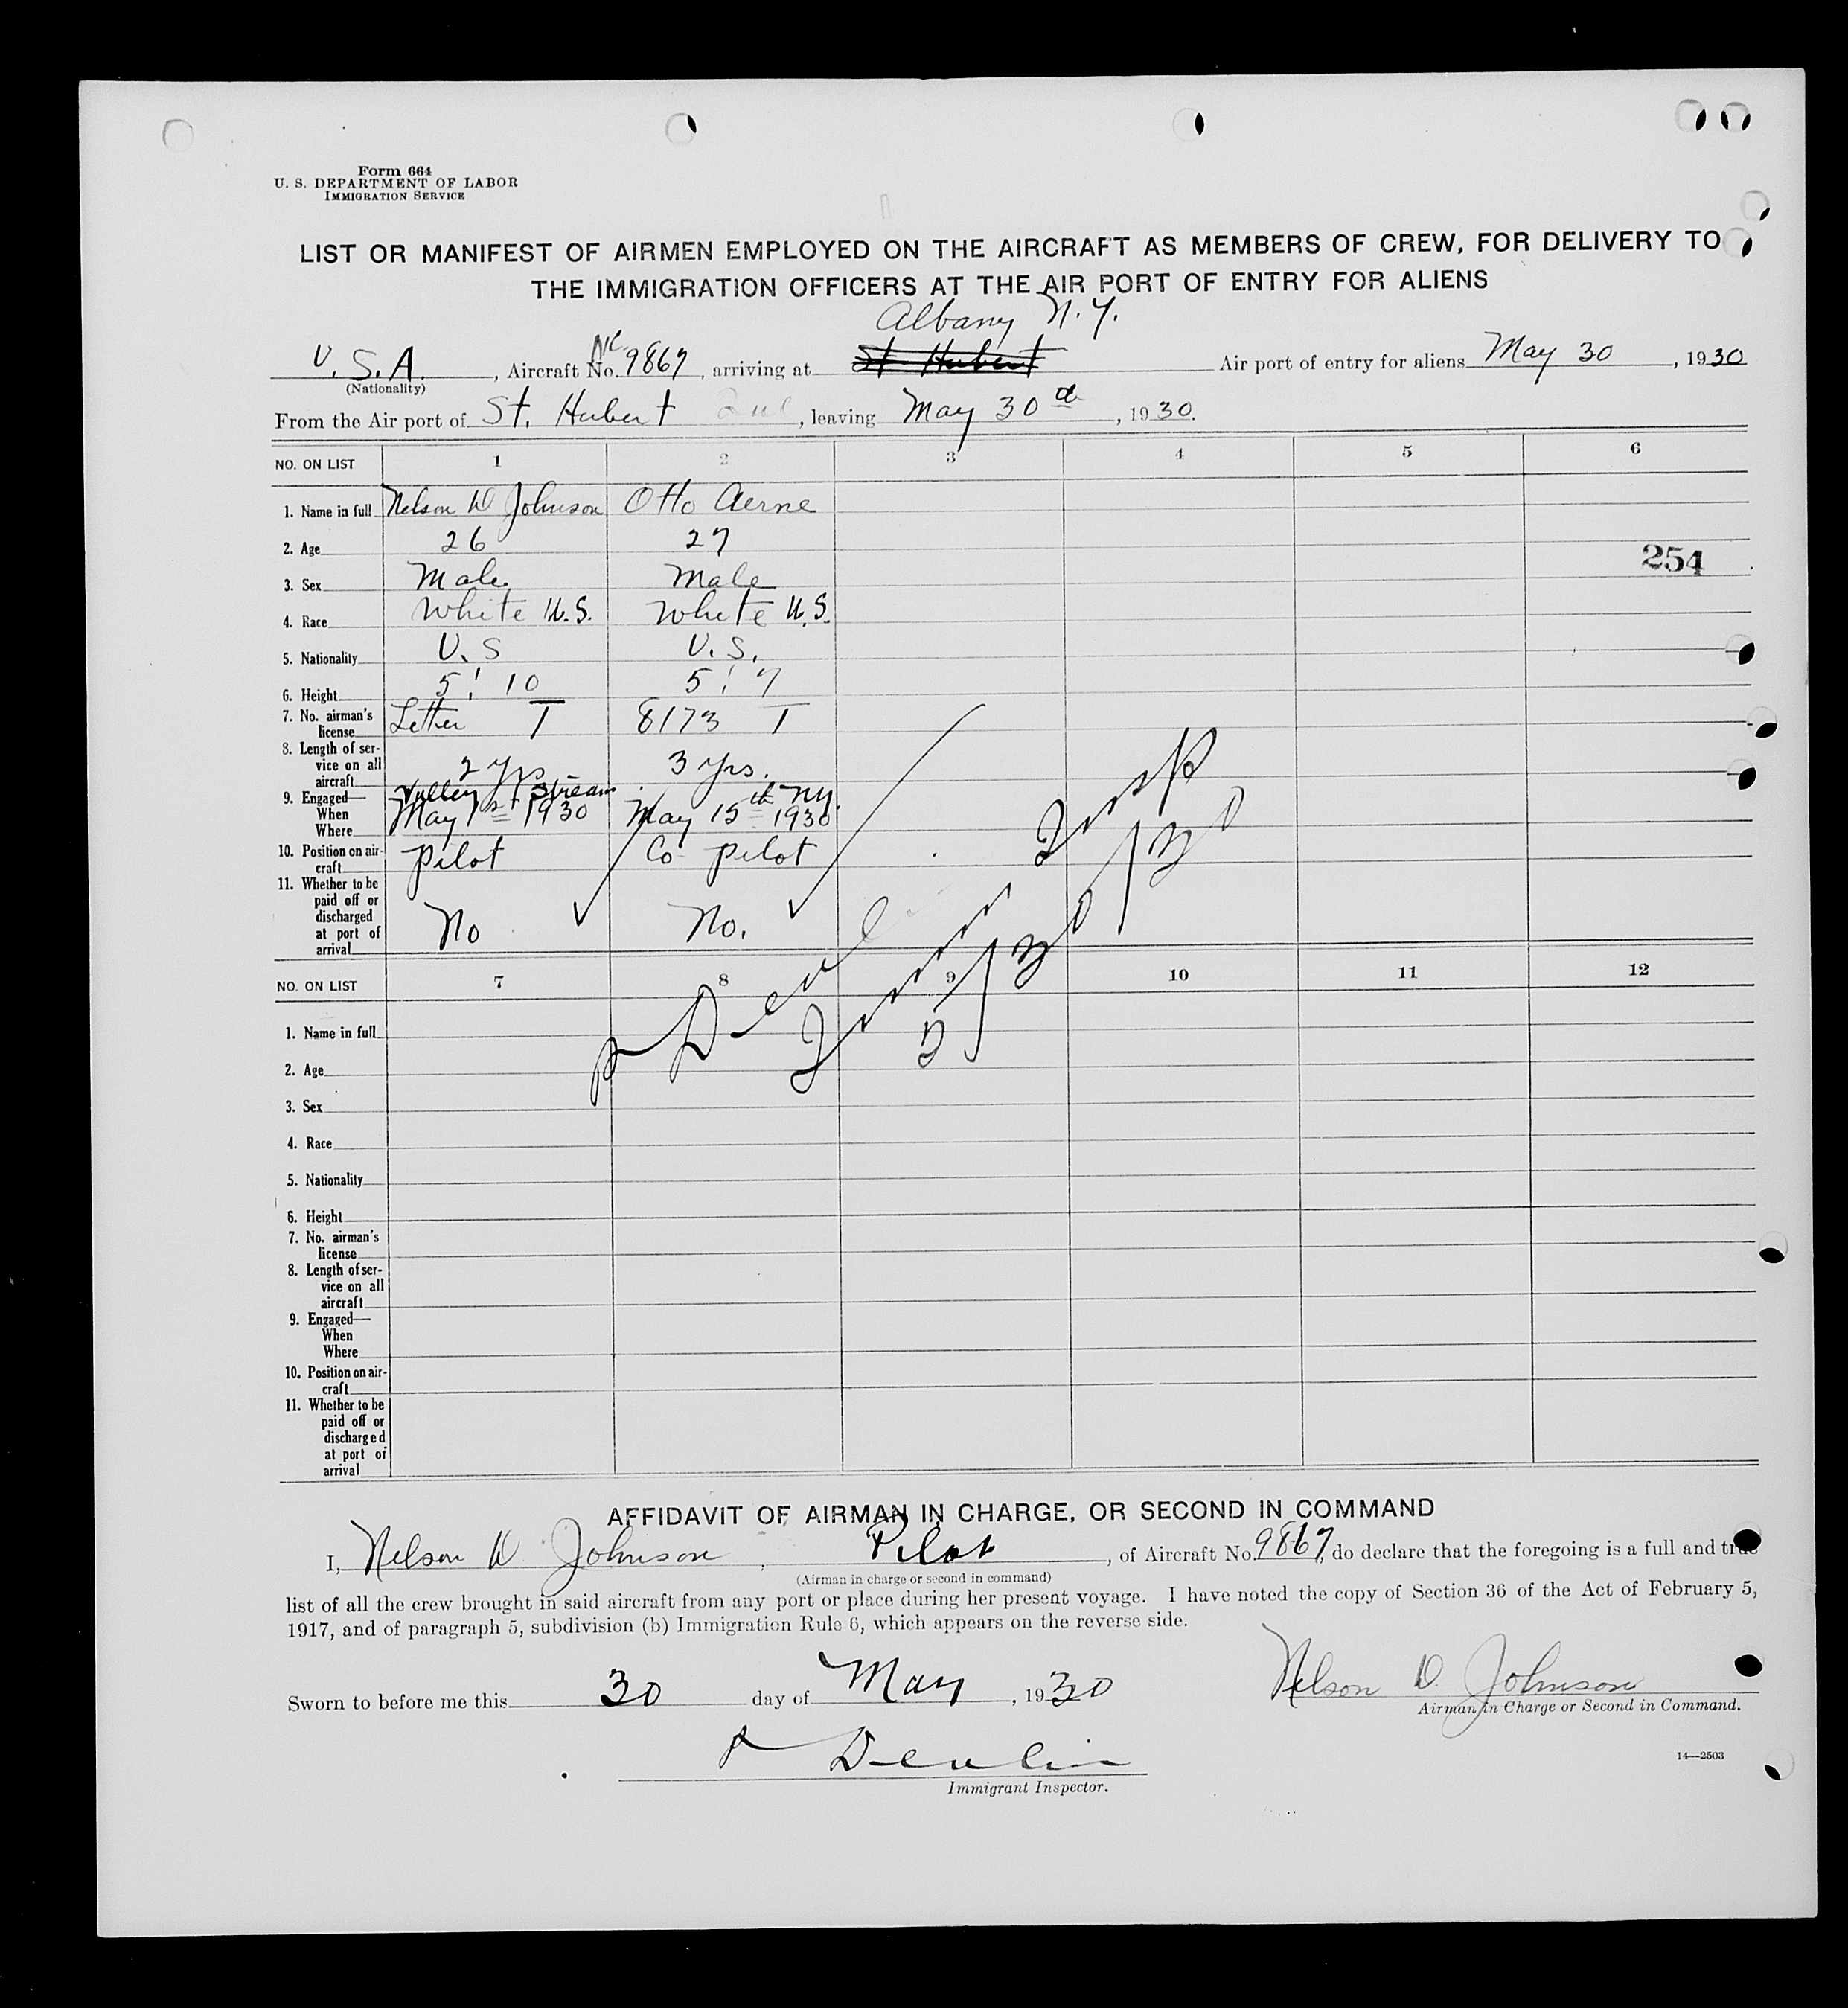 Form 664
U. S. DEPARTMENT OF LABOR
IMMIGRATION SERVICE
LIST OR MANIFEST OF AIRMEN EMPLOYED ON THE AIRCRAFT AS MEMBERS OF CREW, FOR DELIVERY TO
THE IMMIGRATION OFFICERS AT THE AIR PORT OF ENTRY FOR ALIENS
Albany N.Y.
U.S.A. , Aircraft No. NC 9867, arriving at St Hubert Air port of entry for aliens May 30, 1930
(Nationality)
From the Air port of St. Hubert Que, leaving May 30th, 1930.
NO. ON LIST 1 2 3 4 5 6
1. Name in full Nelson D Johnson Otto Aerne
2. Age 26 27
254
3. Sex Male Male
4. Race White U.S. White U.S.
5. Nationality U.S U.S.
6. Height 5' 10 5' 7
7. No. airman's license Letter T 8173 T
8. Length of service on all aircraft 2 yrs 3 yrs.
9. Engaged— When Where Valley Stream N.Y. May 1st 1930 May 15th 1930
10. Position on aircraft Pilot Co pilot
11. Whether to be paid off or discharged at port of arrival No No.
NO. ON LIST 7 8 9 10 11 12
5/30/30
1. Name in full
2. Age
3. Sex
4. Race
5. Nationality
6. Height
7. No. airman's
license
8. Length of ser-
vice on all
aircraft
9. Engaged—
When
Where
10. Position on air-
craft
11. Whether to be
paid off or
discharged
at port of
arrival
AFFIDAVIT OF AIRMAN IN CHARGE, OR SECOND IN COMMAND
I, Nelson D Johnson, Pilot, of Aircraft No. 9867, do declare that the foregoing is a full and true
(Airman in charge or second in command)
list of all the crew brought in said aircraft from any port or place during her present voyage. I have noted the copy of Section 36 of the Act of February 5,
1917, and of paragraph 5, subdivision (b) Immigration Rule 6, which appears on the reverse side.
Sworn to before me this 30 day of May, 1930
Nelson D. Johnson
Airman in Charge or Second in Command.
P Devlin
Immigrant Inspector.
14—2503